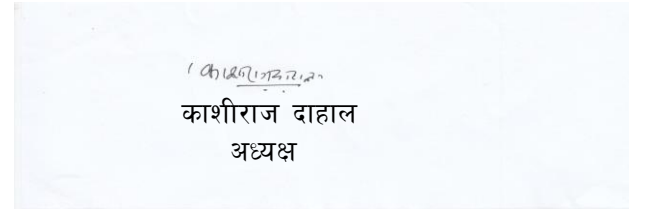 काशीराज दाहाल
अध्यक्ष